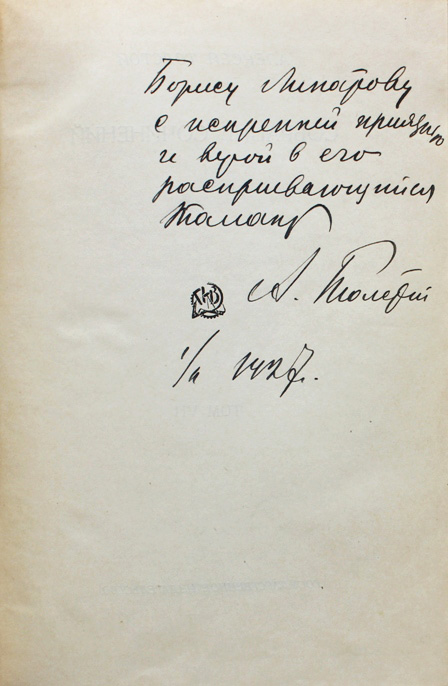 Борису Липатову
с искренней приязнью
и верой в его
распускающийся
талант
А. Толстой
1/II 1927.